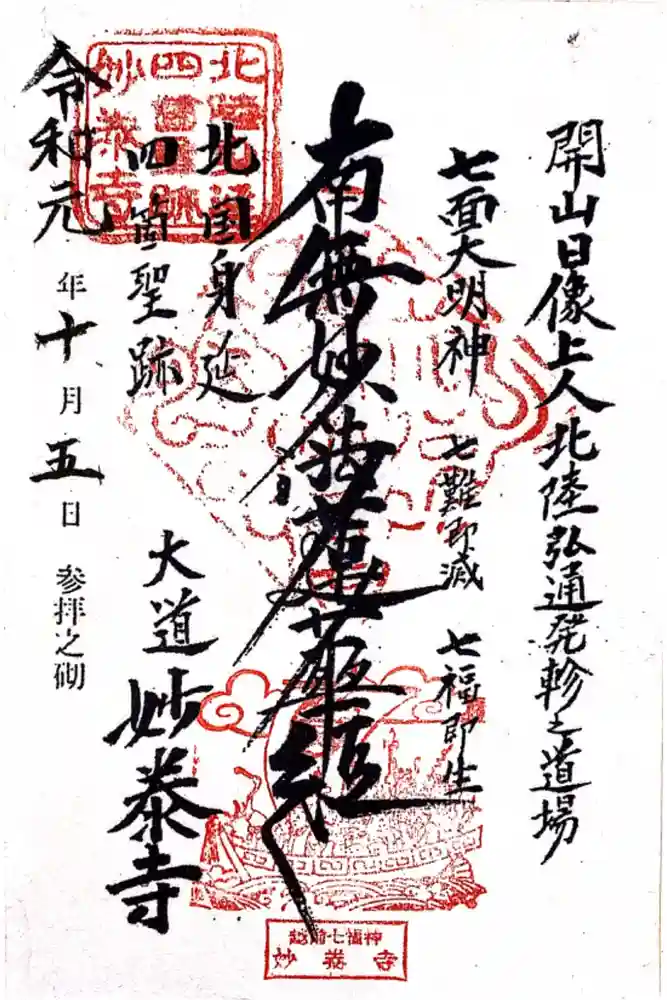 開山日像上人北陸弘通発軫之道場
七面大明神 七難即滅 七福即生
南無妙法蓮華経
北国身延
四箇聖跡
大道 妙泰寺
令和元年十月五日 参拝之砌
妙泰寺
越前七福神
妙泰寺